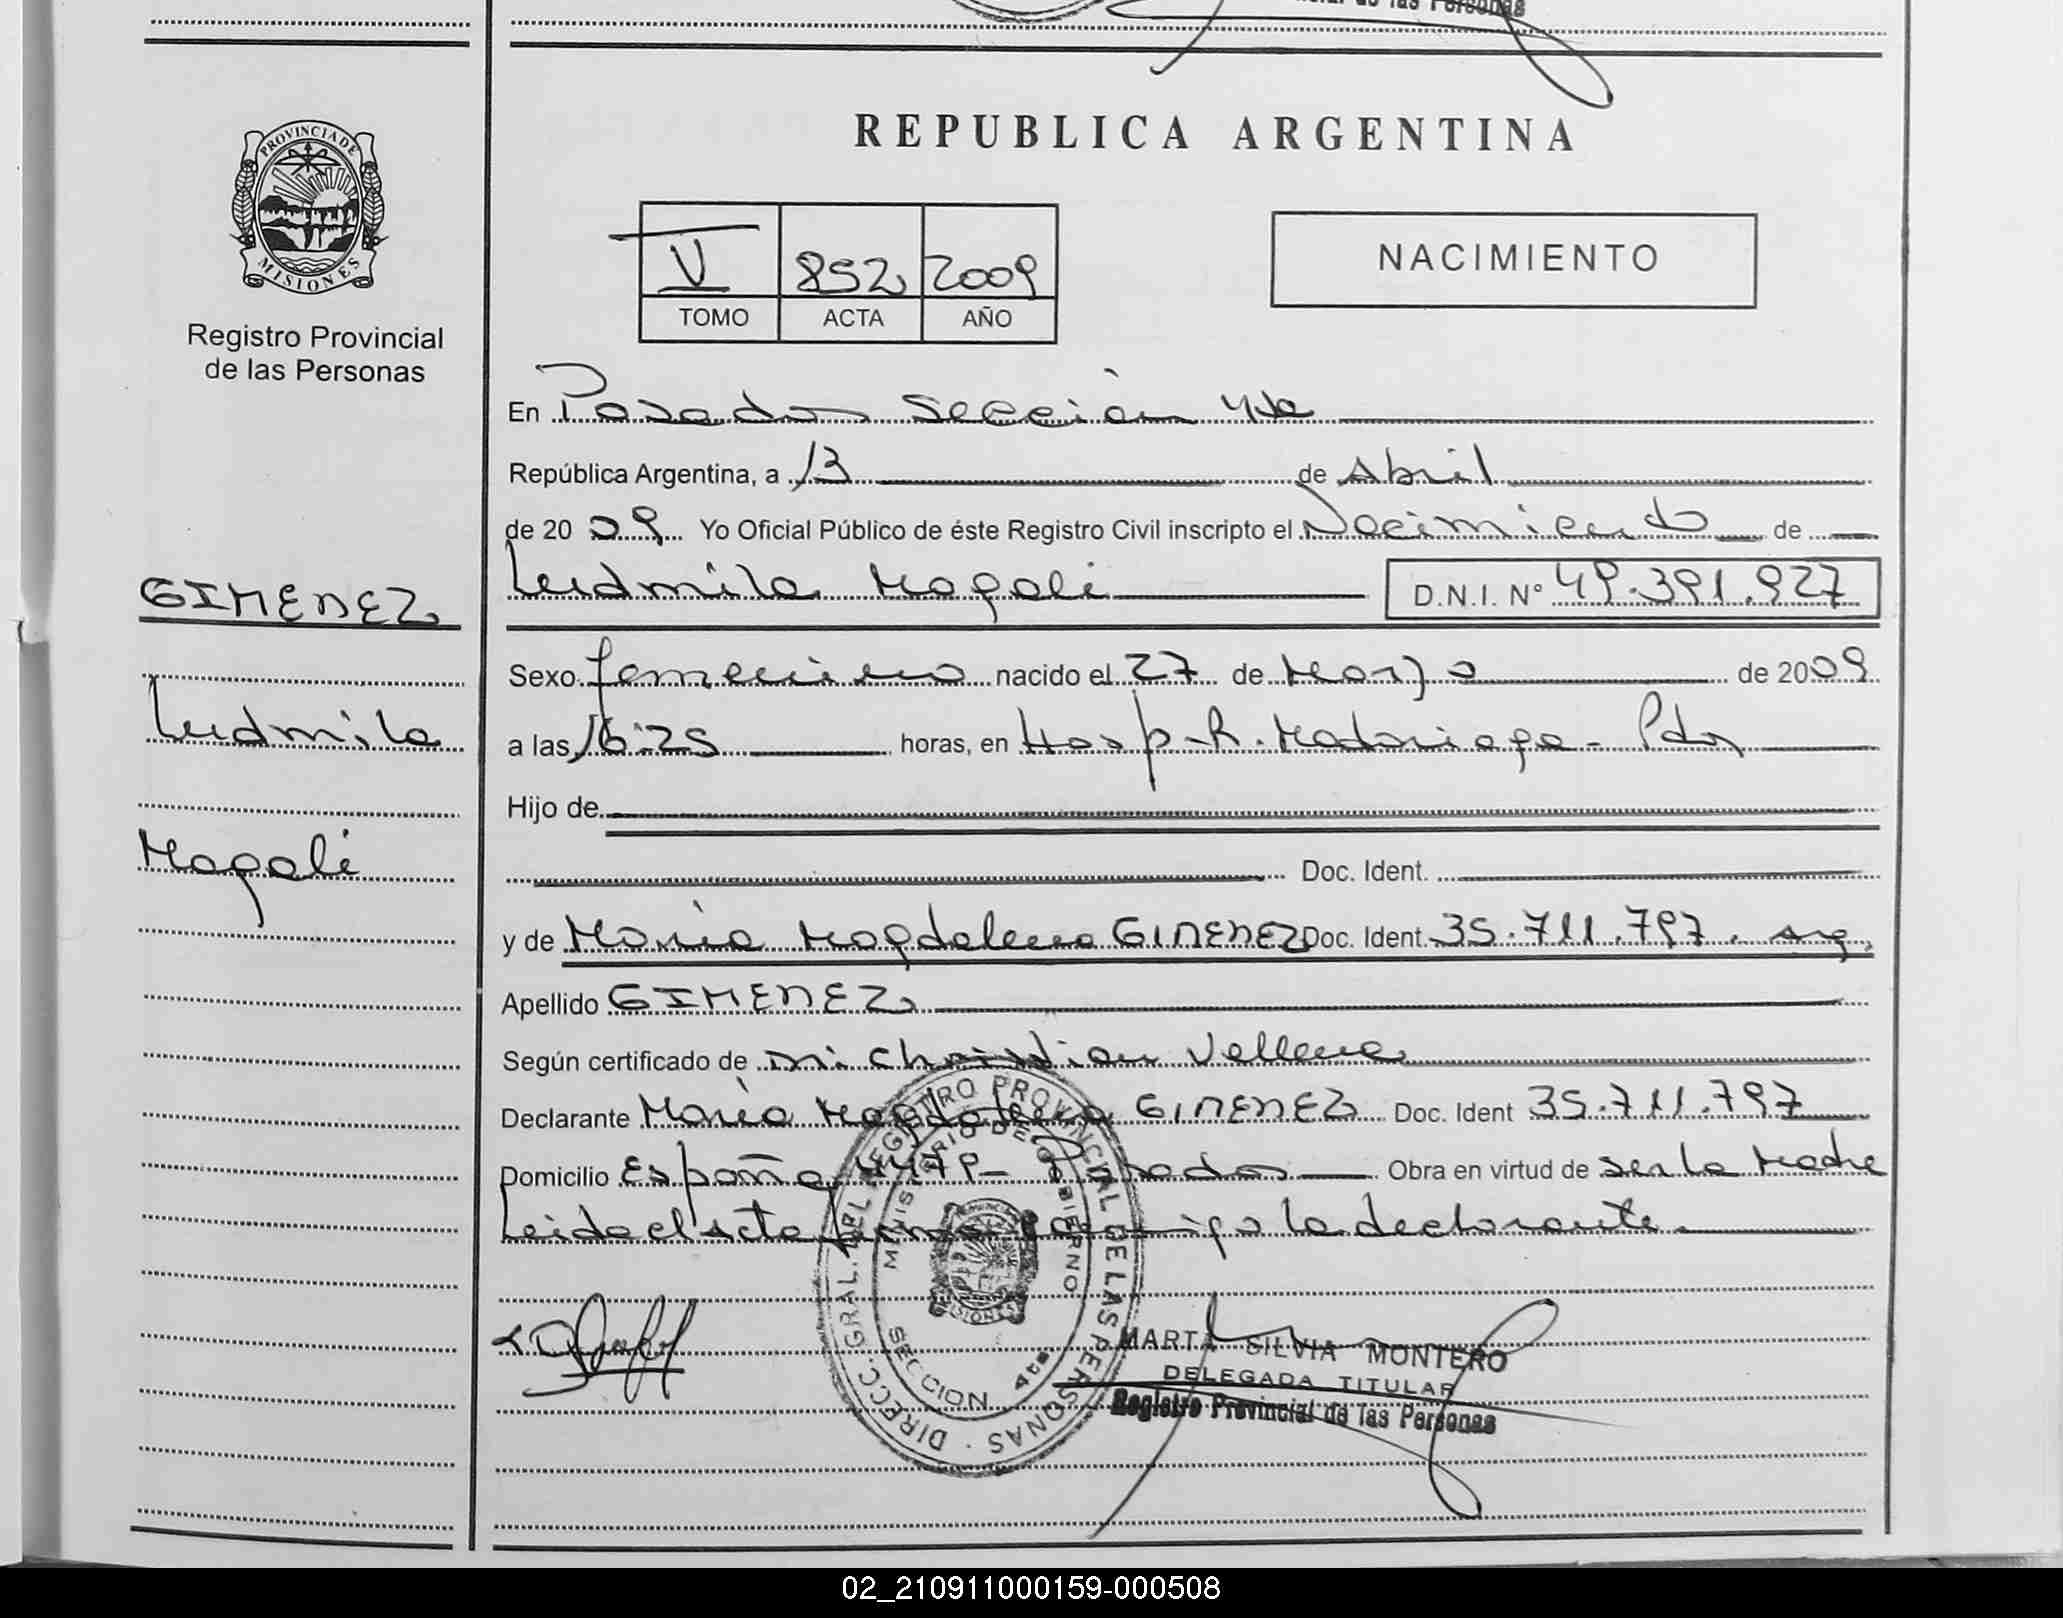 de las Personas
PROVINCIA DE
MISIONES
Registro Provincial
de las Personas
GIMENEZ
Ludmila
Magali
REPUBLICA ARGENTINA
V 852 2009
TOMO ACTA AÑO
NACIMIENTO
En Posadas Sección 4ta
República Argentina, a 13 de Abril
de 20 09 Yo Oficial Público de éste Registro Civil inscripto el Nacimiento de
Ludmila Magali D.N.I. N° 49.391.927
Sexo femenino nacido el 27 de Marzo de 2009
a las 16:25 horas, en Hosp. R. Madariaga - Pdas
Hijo de
Doc. Ident.
y de María Magdalena GIMENEZ Doc. Ident. 35.711.797. arg.
Apellido GIMENEZ
Según certificado de Christian Vellena
Declarante María Magdalena GIMENEZ Doc. Ident 35.711.797
Domicilio España 4479 - Posadas Obra en virtud de ser la Madre
Leida el Acta firma conmigo la declarante.
DIRECC. GRAL. DEL REGISTRO PROVINCIAL DE LAS PERSONAS
MINISTERIO DE GOBIERNO
MISIONES
SECCION 4ta
MARTA SILVIA MONTERO
DELEGADA TITULAR
Registro Provincial de las Personas
02_210911000159-000508